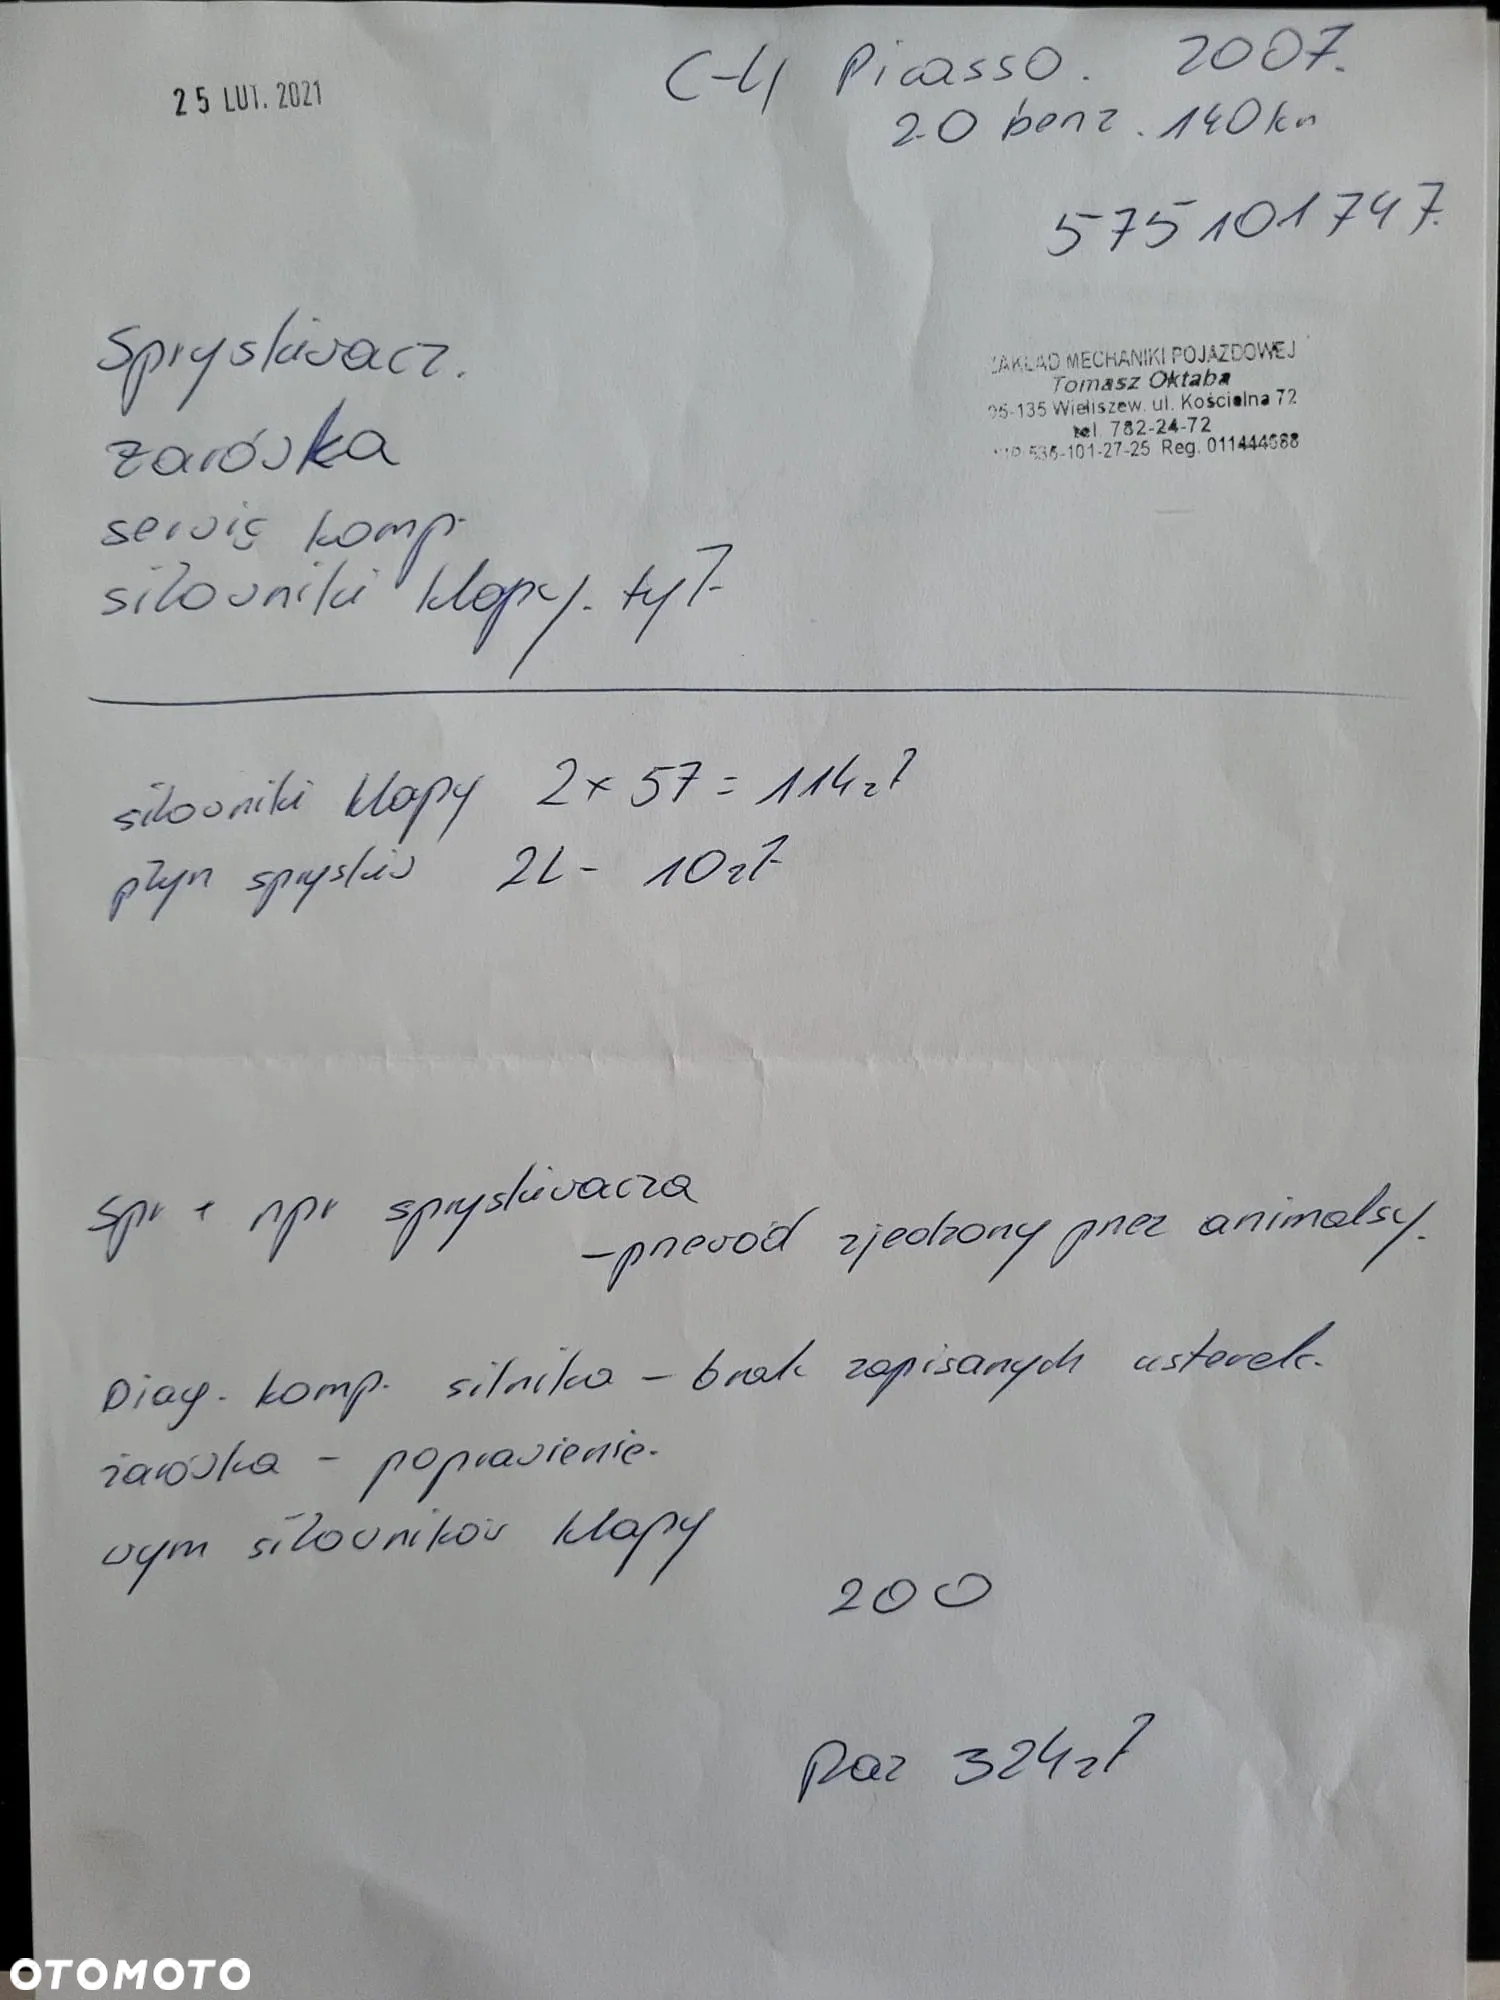 25 LUT. 2021
C-4 Picasso. 2007.
2.0 benz. 140km
575101747.
ZAKŁAD MECHANIKI POJAZDOWEJ
Tomasz Oktaba
05-135 Wieliszew. ul. Kościelna 72
tel. 782-24-72
NIP 536-101-27-25 Reg. 011444688
Spryskiwacz.
żarówka
serwis komp.
siłowniki klapy. tył.
siłowniki klapy 2x57=114zł
płyn spryskiw 2L- 10zł
Spr + npr spryskiwacza
-przewód zjedzony przez animalsy.
Diag. komp. silnika - brak zapisanych usterek.
żarówka - poprawienie.
wym siłowników klapy
200
Raz 324zł
OTOMOTO